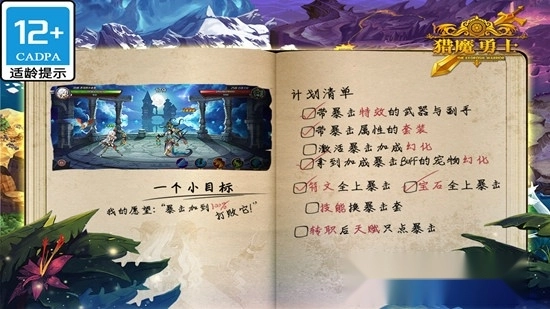 12+
CADPA
适龄提示
猎魔勇士
计划清单
带暴击特效的武器与副手
带暴击属性的套装
激活暴击加成幻化
拿到加成暴击Buff的宠物幻化
符文全上暴击 宝石全上暴击
技能换暴击套
转职后天赋只点暴击
一个小目标
我的愿望:“暴击加到100%
打败它!”